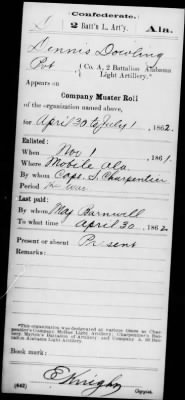 Confederate.
1
2 Batt'n L. Art'y.
Ala.
Dennis Dowling
Pvt
Co. A, 2 Battalion Alabama
Light Artillery.*
Appears on
Company Muster Roll
of the organization named above,
for April 30 to July 1, 1862.
Enlisted:
When Nov 1, 1861.
Where Mobile Ala
By whom Capt. S. Charpentier
Period the War
Last paid:
By whom Maj Barnwell
To what time April 30, 1862
Present or absent Present
Remarks:
*This organization was designated at various times as Char-
pentier's Company
Battalion of Artillery and Company A, 2d Bat-
talion Alabama Light Artillery.
Book mark:
(642)
E. Knight
Copyist.